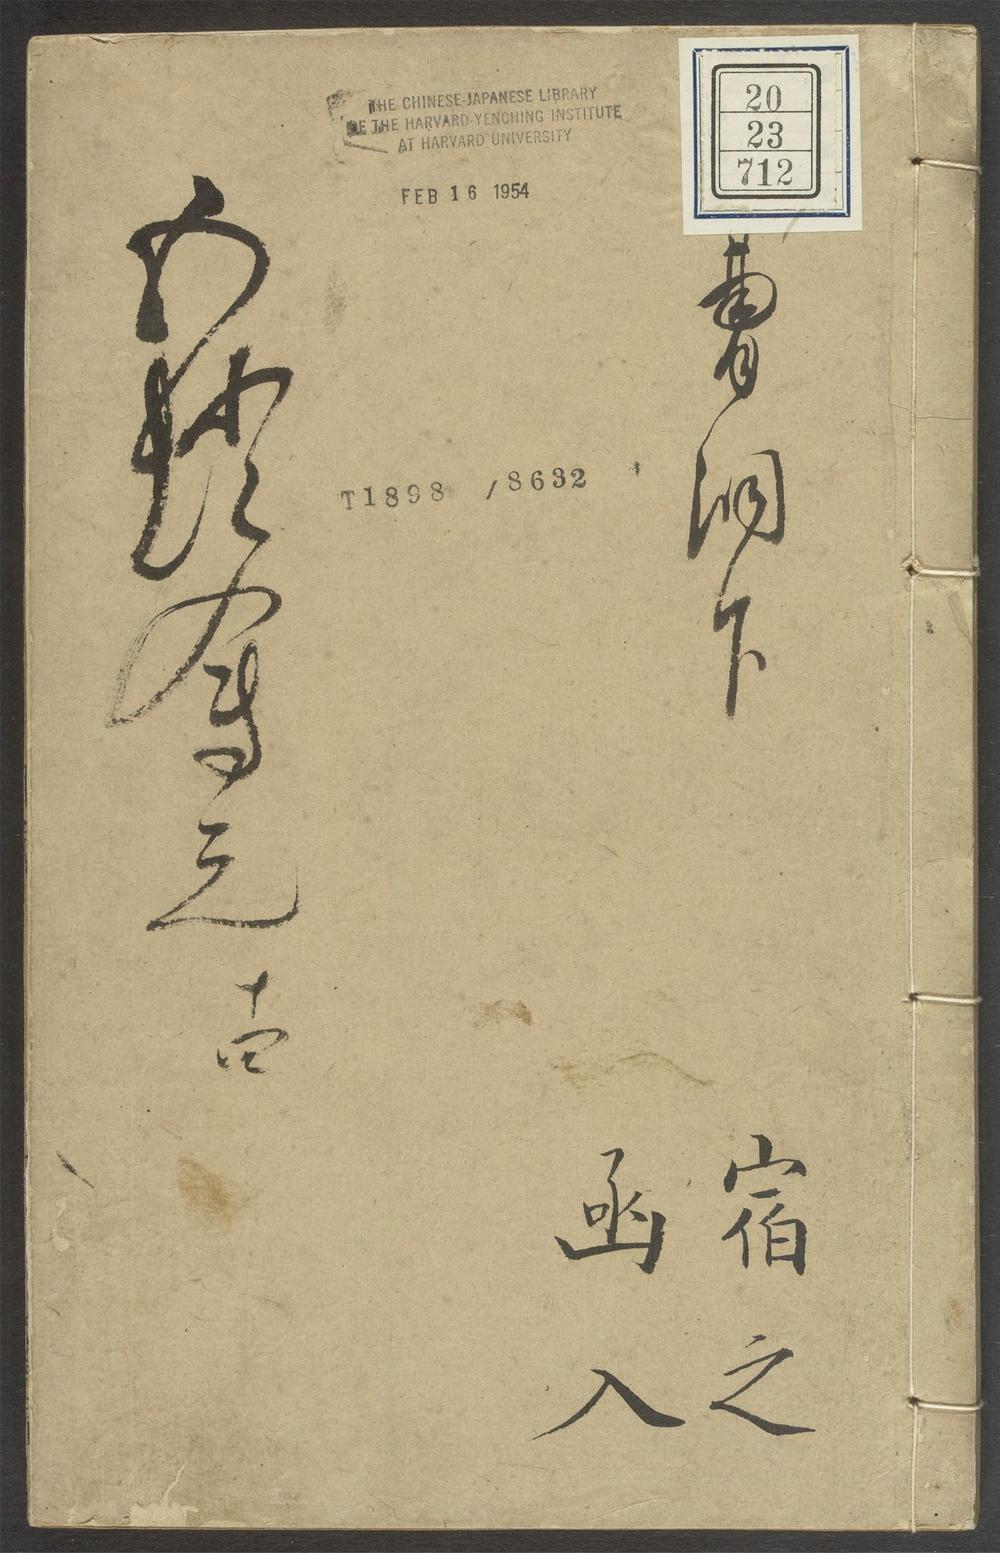 THE CHINESE-JAPANESE LIBRARY
OF THE HARVARD-YENCHING INSTITUTE
AT HARVARD UNIVERSITY
FEB 16 1954
20
23
712
曹洞下
T1898 /8632
五燈會元 十四
宿之
函入